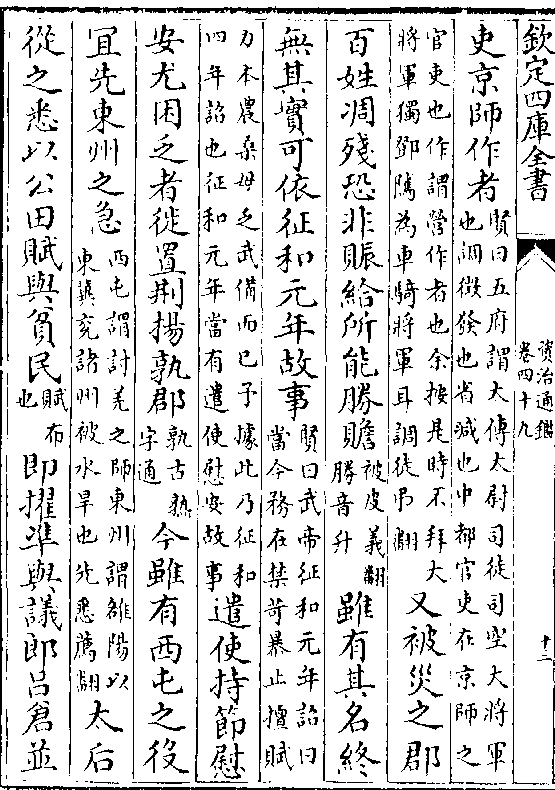 欽定四庫全書
資治通鑑
卷四十九
十二
吏京師作者賢曰五府謂太傅太尉司徒司空大將軍
也調徵發也省減也中都官吏在京師之
官吏也作謂營作者也余按是時不拜大
將軍獨鄧騭為車騎將軍耳調徒弔翻又被災之郡
百姓凋殘恐非賑給所能勝贍被皮義翻
勝音升雖有其名終
無其實可依征和元年故事賢曰武帝征和元年詔曰
當今務在禁苛暴止擅賦
力本農桑毋乏武備而已予據此乃征和
四年詔也征和元年當有遣使慰安故事遣使持節慰
安尤困乏者徙置荆揚孰郡孰古熟
字通今雖有西屯之役
宜先東州之急西屯謂討羌之師東州謂雒陽以
東冀兖諸州被水旱也先悉薦翻太后
從之悉以公田賦與貧民賦布
也即擢準與議郎吕倉並